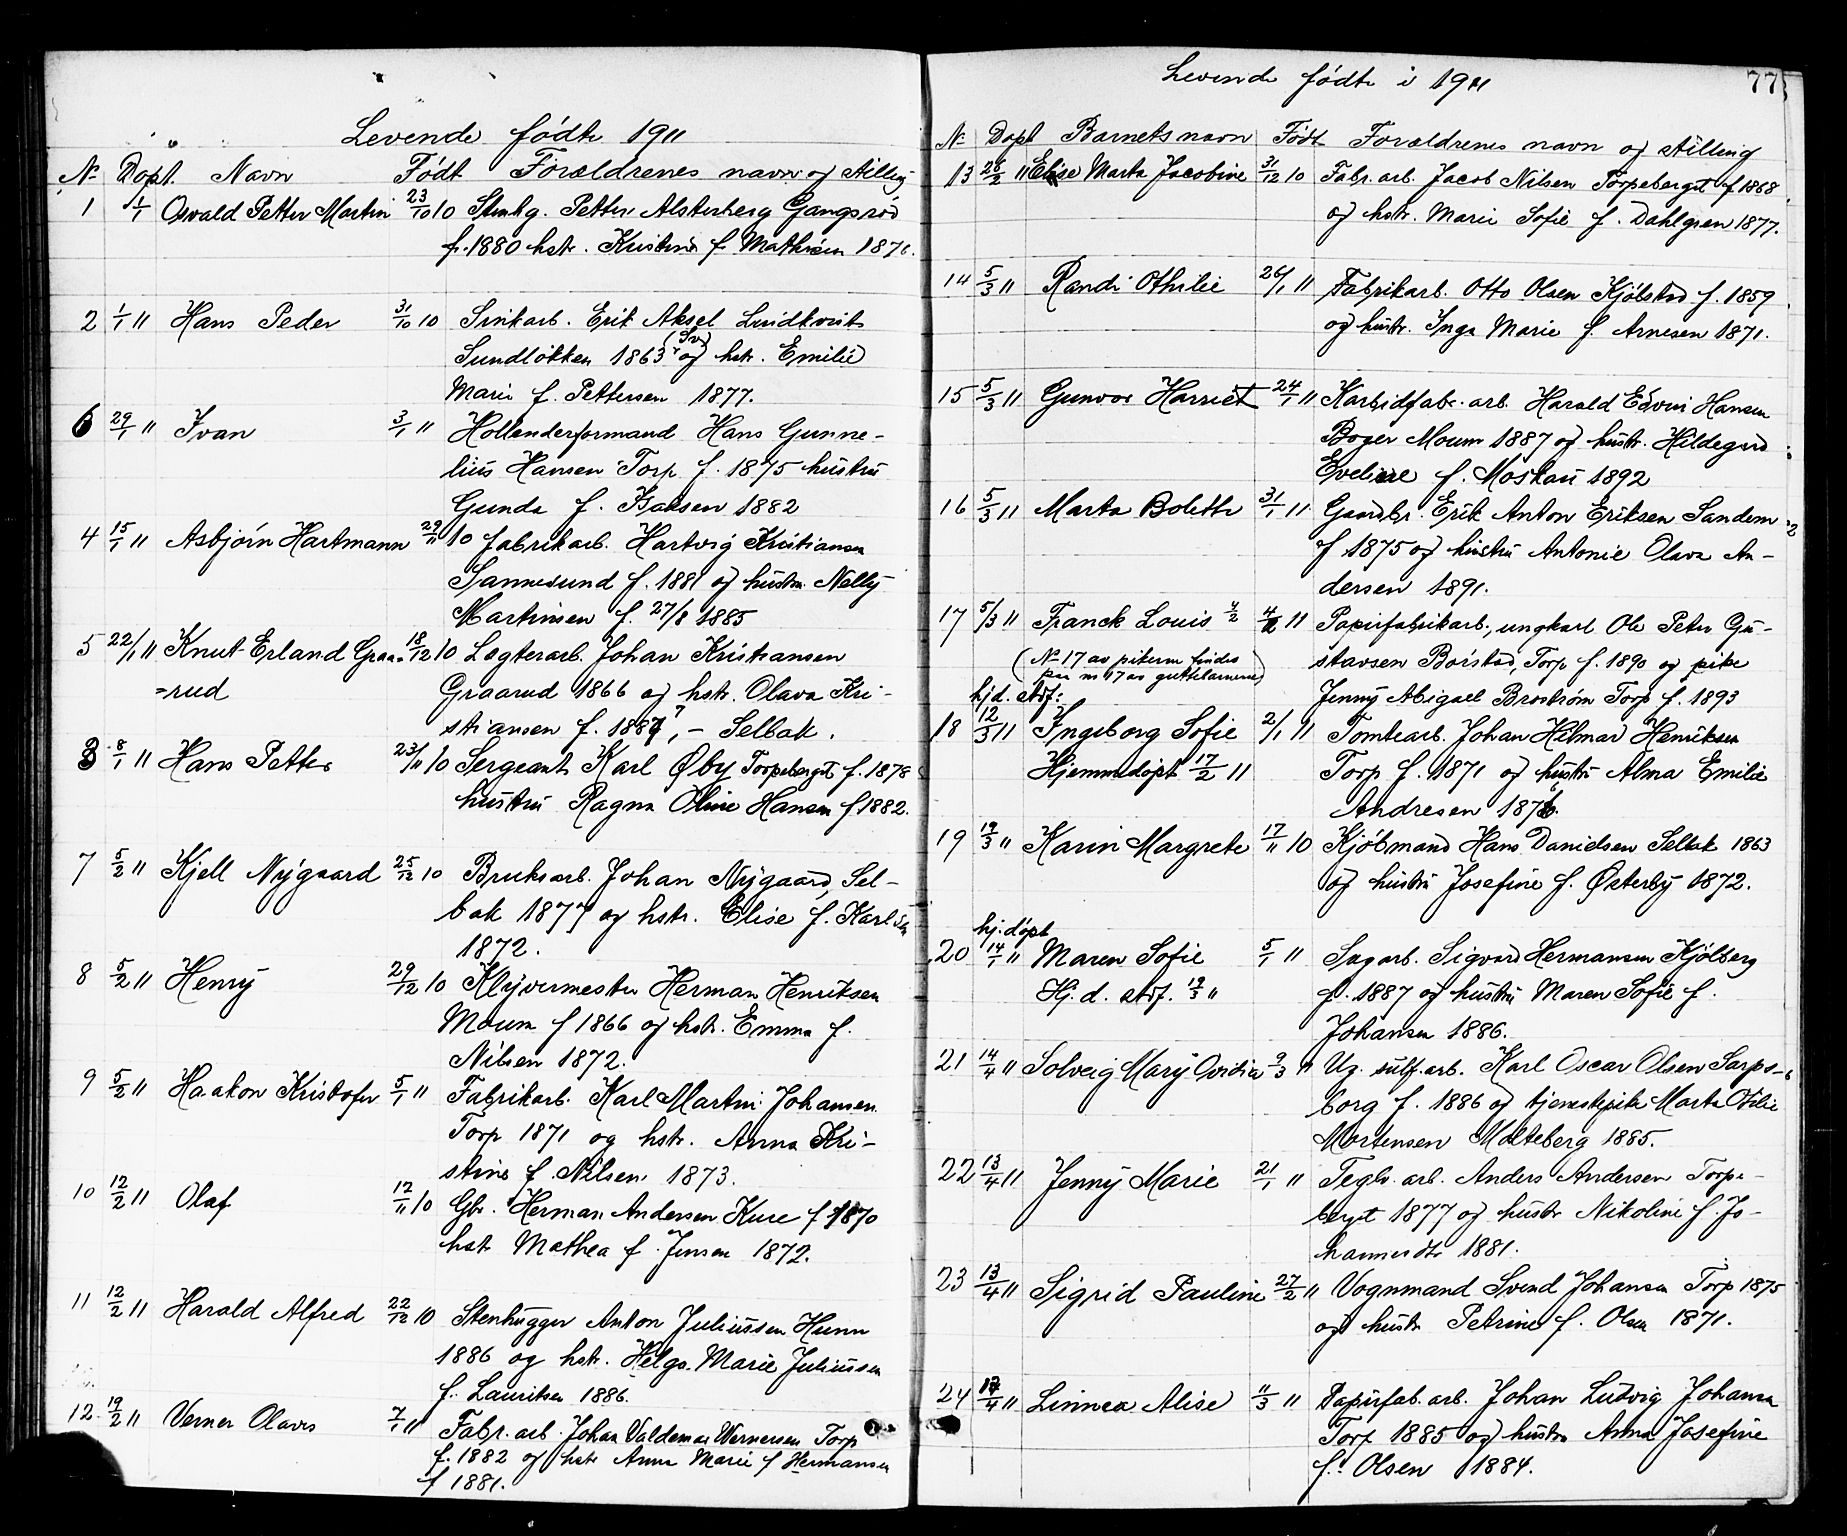 Levende fødte 1911
No Døpt. Navn Født Forældrenes navn og stilling
1 1/1 Osvald Petter Martin 23/10 10 Stenhg. Petter Alsterberg Gangsrød
f. 1880 hstr. Kristine f. Mathisen 1876.
2 1/1 " Hans Peder 31/10 10 Sinkarb. Erik Aksel Lindkvist
Sundløkken 1863 (Sv) og hstr. Emilie
Marie f. Pettersen 1877.
6 29/1 " Ivan 3/1 " Hollenderformand Hans Gunne-
lius Hansen Torp f. 1875 hustru
Gunda f. Isaksen 1882
4 15/1 " Asbjørn Hartmann 29/11 10 fabrikarb. Hartvig Kristiansen
Sannesund f. 1881 og hustru Nelly
Martinsen f. 27/8 1885
5 22/1 " Knut Erland Graa- 18/12 10 Lagterarb. Johan Kristiansen
=rud Graarud 1866 og hstr. Olava Kri-
stiansen f. 1887, - Selbak.
3 8/1 " Hans Petter 23/11 10 Sergeant Karl Øby Torpeberget f. 1878
hustru Ragna Oline Hansen f 1882.
7 5/2 " Kjell Nygaard 25/12 10 Bruksarb. Johan Nygaard, Sel-
bak 1877 og hstr. Elise f. Karlsen
1872.
8 5/2 " Henry 29/12 10 Klyvermester Herman Henriksen
Moum f 1866 og hstr. Emma f.
Nilsen 1872.
9 5/2 " Haakon Kristofer 5/1 " Fabrikarb. Karl Martin Johansen
Torp 1871 og hstr. Anna Kri-
stine f. Nilsen 1873.
10 12/2 " Olaf 17/11 10 Gbr. Herman Andersen Kure f 1870
hstr Mathea f. Jensen 1872.
11 12/2 " Harald Alfred 22/12 10 Stenhugger Anton Juliussen Hunn
1886 og hstr. Helga Marie Juliussen
f. Lauritsen 1886.
12. 19/2 " Verner Olavs 7/1 " Fabr. arb. Johan Valdemar Wernersen Torp
f. 1882 og hstr Anna Marie f Hermansen
f 1881.
Levende fødte i 1911 77
No Døpt Barnets navn Født Forældrenes navn og stilling
13 26/2 " Elise Marta Jacobine 31/12 10 Fabr. arb. Jacob Nilsen Torpeberget f 1868
og hstr. Marie Sofie f. Dahlgren 1877.
14 5/3 " Randi Othilie 26/1 " Fabrikarb. Otto Olsen Kjølstad f. 1859
og hustr. Inga Marie f. Arnesen 1871.
15 5/3 " Gunvor Harriet 24/1 " Karbidfabr. arb. Harald Edvin Hansen
Boger Moum 1887 og hustr. Hildegard
Eveline f. Moskau 1892
16 5/3 " Marta Bolette 31/1 " Gaardbr. Erik Anton Eriksen Sandem
f 1875 og hustru Antonie Olava An-
dersen 1891.
17 5/3 " Franck Louis 4/2 " Papirfabrikarb., ungkarl Ole Peter Gu-
(No 17 av pikerne findes stavsen Borstad, Torp f. 1890 og pike
paa nr 17 av guttelarnene)
hjd. stdf: Jenny Abigael Brostrøm Torp f. 1893
18 12/3 " Ingeborg Sofie 2/1 " Tomtearb. Johan Hilmar Henriksen
Hjemmedøpt 17/2 11 Torp f. 1871 og hustru Alma Emilie
Andresen 1876.
19 19/3 " Karin Margrete 17/11 10 Kjøbmand Hans Danielsen Selbak 1863
og hustru Josefine f. Østerby 1872.
hj. døpt
20 14/1 " Maren Sofie 5/1 " Sagarb. Sigvard Hermansen Kjølberg
Hj. d. stdf. 19/3 " f. 1887 og hustru Maren Sofie f.
Johansen 1886.
21 14/4 " Solveig Mary Ovidia 9/3 " Ug. sulf. arb. Karl Oscar Olsen Sarps-
borg f. 1886 og tjenestepike Marta Otilie
Mortensen Molteberg 1885.
22 13/4 " Jenny Marie 21/1 " Teglv. arb. Anders Andersen Torpe-
berget 1877 og hustr Nikoline f. Jo-
hannesdtr 1881.
23 13/4 " Sigrid Pauline 27/2 " Vognmand Svend Johansen Torp 1875
og hustr Petrine f. Olsen 1871.
24 17/4 " Linnea Alise 11/3 " Papirfab. arb. Johan Ludvig Johansen
Torp 1885 og hustru Anna Josefine
f. Olsen 1884.